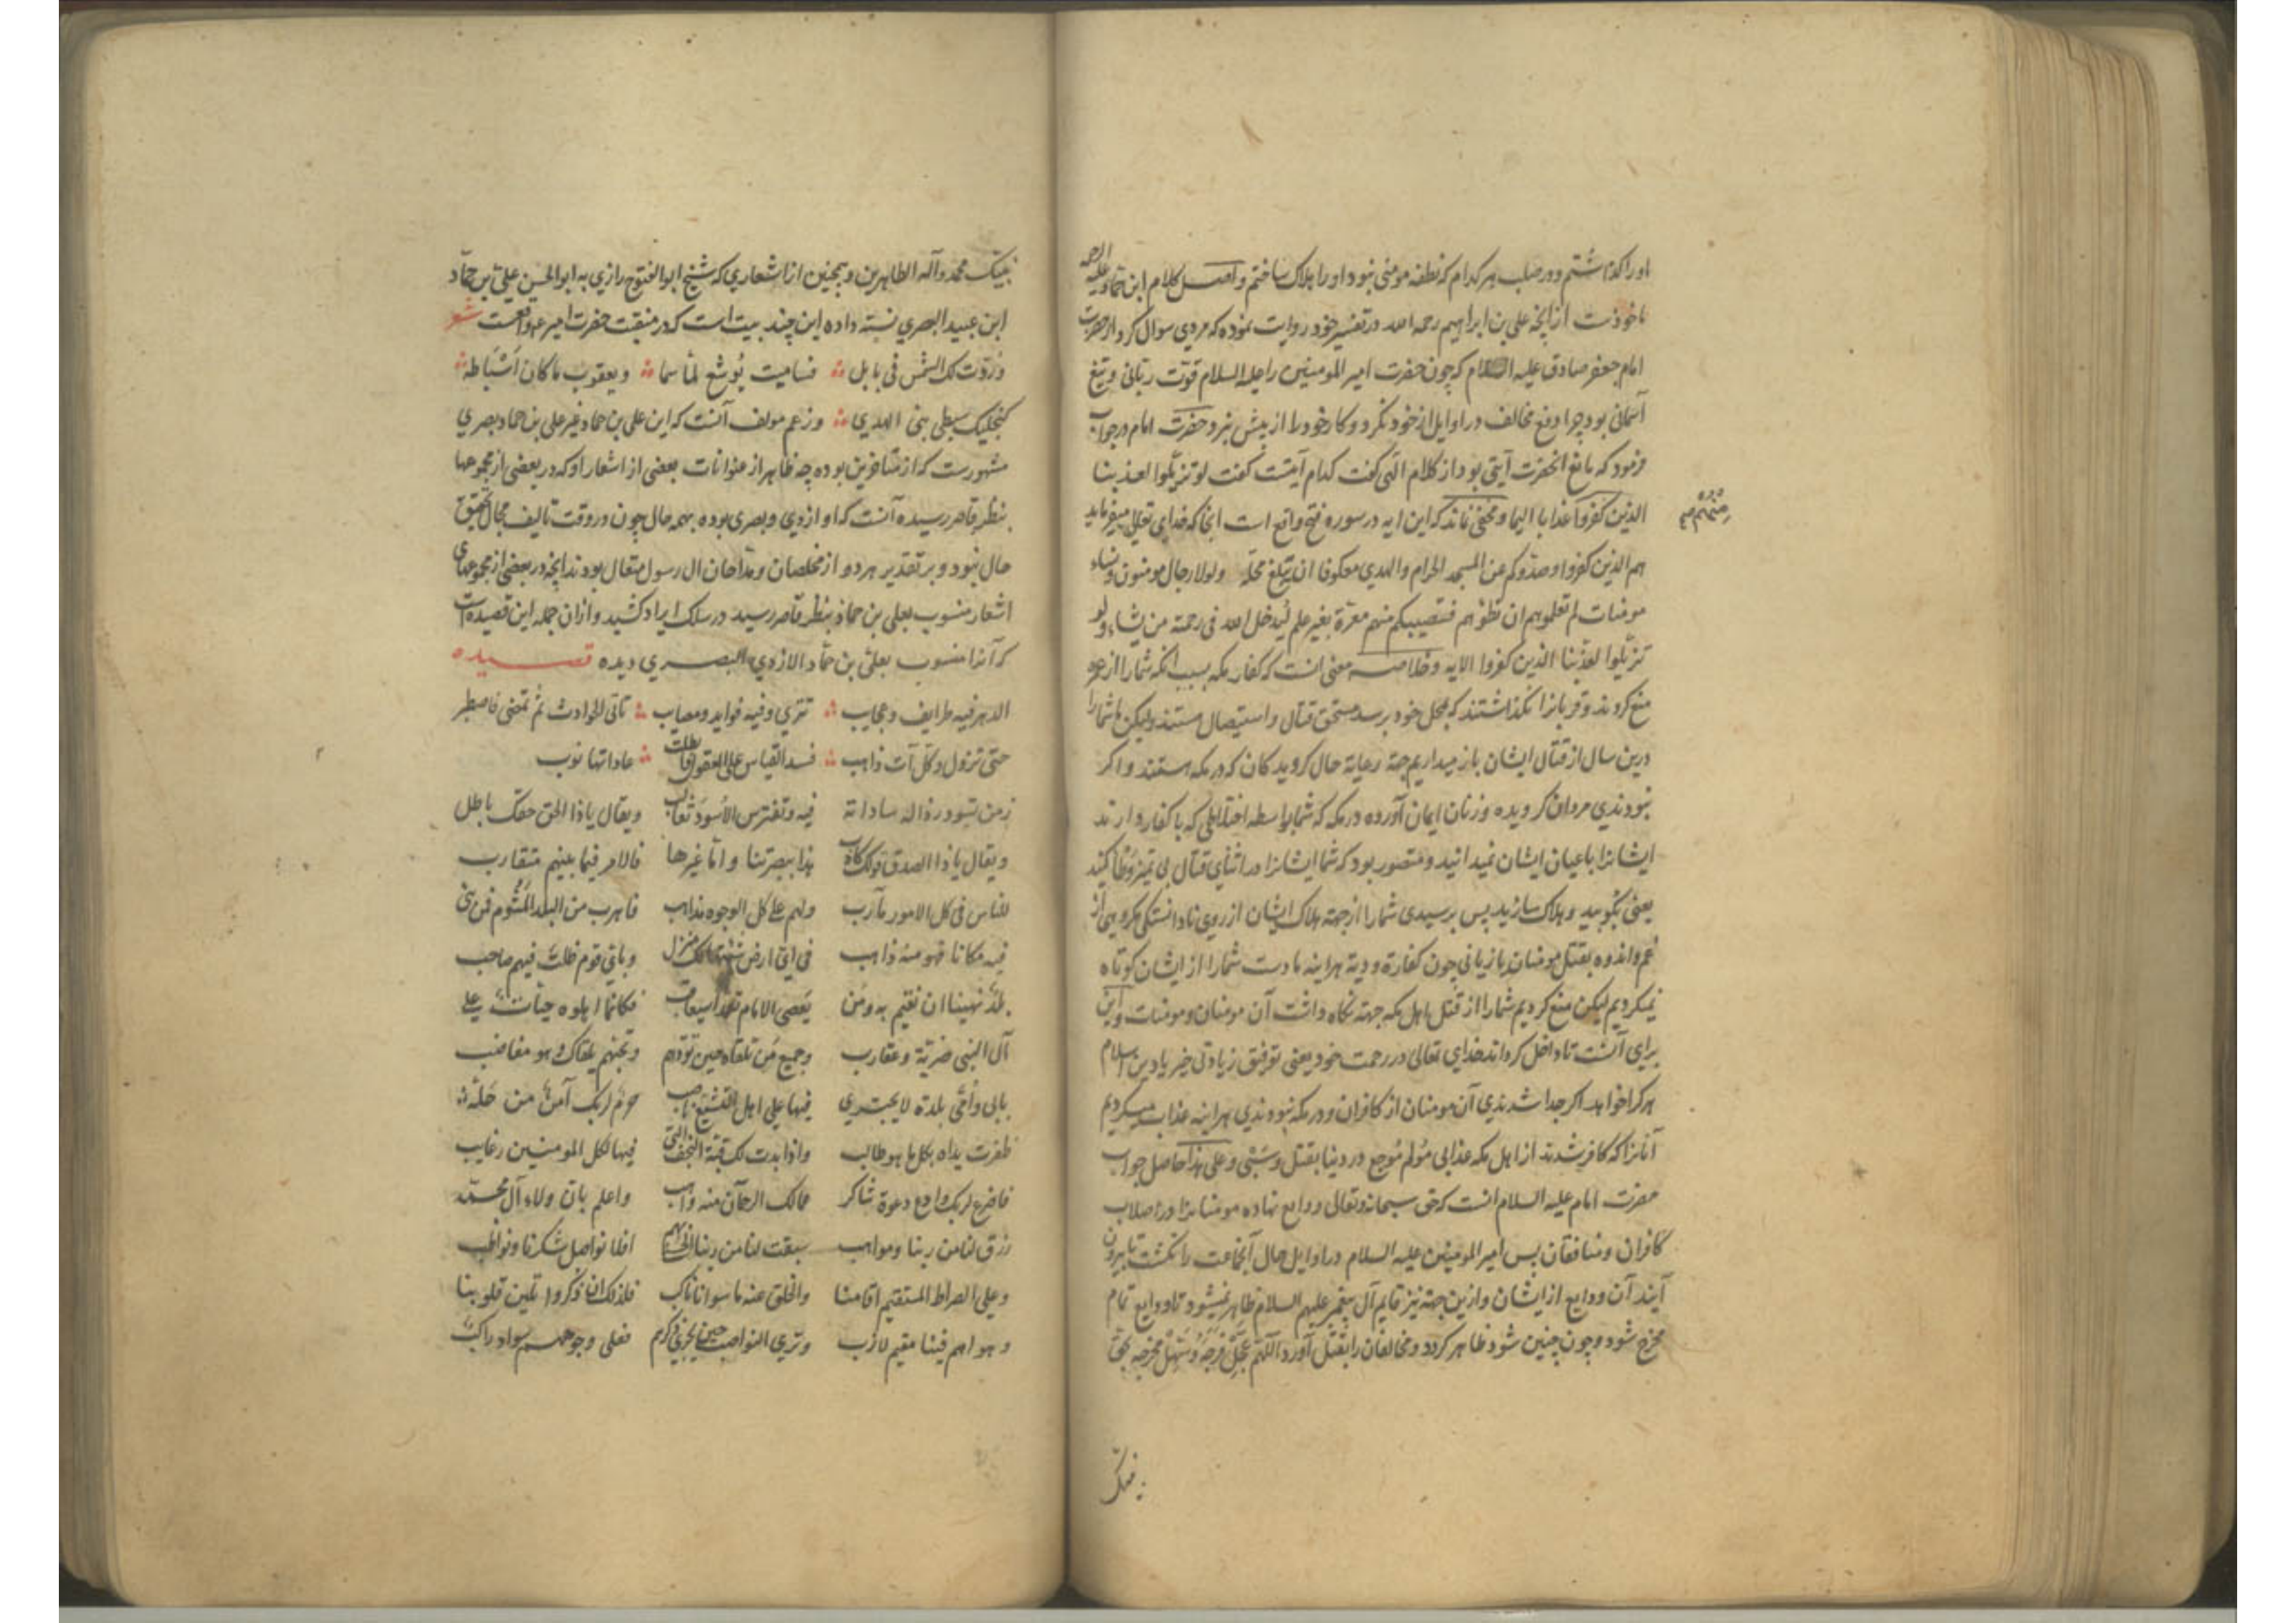 او را گذاشتم و در صلب هر کدام که نطفه مومنی نبود او را هلاک ساختم و اصل کلام ابن حماد علیه الرحمه
ماخوذست از انچه علی بن ابراهیم رحمه الله در تفسیر خود روایت نموده که مردی سوال کرد از حضرت
امام جعفر صادق علیه السلام که چون حضرت امیر المومنین را علیه السلام قوت ربانی و تیغ
آسمانی بود چرا دفع مخالف در اوایل از خود نکرد و کار خود را از پیش نبرد حضرت امام در جواب
فرمود که مانع انحضرت آیتی بود از کلام الهی گفت کدام آیتست گفت لو تزیلوا لعذبنا
الذین کفروا عذابا الیما و مخفی نماند که این ایه در سوره فتح واقع است انجا که خدای تعالی میفرماید
هم الذین کفروا وصدوکم عن المسجد الحرام والهدی معکوفا ان یبلغ محله ولولا رجال مومنون ونساء
مومنات لم تعلموهم ان تطؤهم فتصیبکم منهم معرة بغیر علم لیدخل الله فی رحمته من یشاء ولو
تزیلوا لعذبنا الذین کفروا الایه و خلاصه معنی انست که کفار مکه بسبب انکه شما را از عمره
منع کردند و قربانرا نگذاشتند که بمحل خود برسد مستحق قتال و استیصال هستند ولیکن ما شما را
درین سال از قتال ایشان باز میداریم جهة رعایة حال گرویدگان که در مکه هستند و اگر
نبودندی مردان گرویده و زنان ایمان آورده در مکه که شما بواسطه اختلاطی که با کفار دارند
ایشانرا باعیان ایشان نمیدانید و متصور بود که شما ایشانرا در اثنای قتال بی تمیز وطأ کنید
یعنی بکوبید و هلاک سازید پس برسیدی شما را از جهة هلاک ایشان از روی نادانستگی مکروهی از
غم و اندوه بقتل مومنان یا زیانی چون کفارة و دیة هراینه ما دست شما را از ایشان کوتاه
نمیکردیم لیکن منع کردیم شما را از قتل اهل مکه جهة نگاه داشت آن مومنان و مومنات و این
برای آنست تا داخل گرداند خدای تعالی در رحمت خود یعنی توفیق زیادتی خیر یا دین اسلام
هر کرا خواهد اگر جدا شدندی آن مومنان از کافران و در مکه نبودندی هراینه عذاب میکردیم
آنانرا که کافر شدند از اهل مکه عذابی مولم موجع در دنیا بقتل و سبی و علی هذا حاصل جواب
حضرت امام علیه السلام انست که حق سبحانه وتعالی ودایع نهاده مومنانرا در اصلاب
کافران و منافقان پس امیر المومنین علیه السلام در اوایل حال آنجماعت را نکشت تا بیرون
آیند آن ودایع از ایشان و ازین جهة نیز قایم آل پیغمبر علیهم السلام ظاهر نمیشود تا ودایع تمام
مخرج شود و چون چنین شود ظاهر گردد و مخالفان را بقتل آورد اللهم عجل فرجه وسهل مخرجه بحق
نبیک
نبیک محمد وآله الطاهرین و همچنین از اشعاری که شیخ ابو الفتوح رازی به ابو الحسن علی بن حماد
ابن عبید البصری نسبه داده این چند بیت است که در منقبت حضرت امیر واقعست شعر
وردت لک الشمس فی بابل فسامیت یوشع لما سما ویعقوب ما کان اسباطه
کنجلیک سبطی نبی الهدی و زعم مولف آنست که این علی بن حماد غیر علی بن حماد بصری
مشهورست که از متاخرین بوده چه ظاهر از عنوانات بعضی از اشعار او که در بعضی از مجموعها
بنظر قاصر رسیده آنست که او ازدی و بصری بوده بهر حال چون در وقت تالیف مجال تحقیق
حال نبود و بر تقدیر هر دو از مخلصان و مداحان ال رسول متعال بودند انچه در بعضی از مجموعهای
اشعار منسوب بعلی بن حماد بنظر قاصر رسید در سلک ایراد کشید و ازان جمله این قصیده است
که آنرا منسوب بعلی بن حماد الازدی البصری دیده قصیده
الدهر فیه طرایف وعجایب تتری وفیه فواید ومصایب تاتی الحوادث ثم تمضی فاصطبر
حتی تزول وکل آت ذاهب فسد القیاس علی العقول وبطلت عاداتها نوب
زمن تسود رذاله ساداته فیه وتفترس الاسود ثعالب ویقال یاذا الحق حقک باطل
ویقال یاذا الصدق قولک کاذب هذا ببصرتنا واما غیرها فالامر فیما بینهم متقارب
للناس فی کل الامور مآرب ولهم علی کل الوجوه مذاهب فاهرب من البلد المشوم فمن بنی
فیه مکانا فهو منه ذاهب فی ای ارض شئتها لک منزل وبای قوم ظلت فیهم صاحب
بلد نهینا ان نقیم به ومن یعصی الامام تعمدا سیعاقب فکانما اهلوه حیات علی
آل النبی ضریة وعقارب وجمیع من تلقاه حین تودهم وتحبهم یلقاک وهو مغاضب
بابی وامی بلدة لا یجتری فیها علی اهل التشیع ناصب حرم لربک آمن من حله
ظفرت یداه بکل ما هو طالب واذا بدت لک قبة النجف التی فیها لکل المومنین رغایب
فاضرع لربک وادع دعوة شاکر مما لک الرحمان منه واهب واعلم بان ولاء آل محمد
رزق لنا من ربنا ومواهب سبقت لنا من ربنا الحسنی بهم افلا نواصل شکرنا ونواظب
وعلی الصراط المستقیم اقامنا والخلق عنه ما سوانا ناکب فلذلک ان ذکروا تلین قلوبنا
وهواهم فینا مقیم لازب وتری النواصب حین یجری ذکرهم فعلی وجوههم سواد راکب